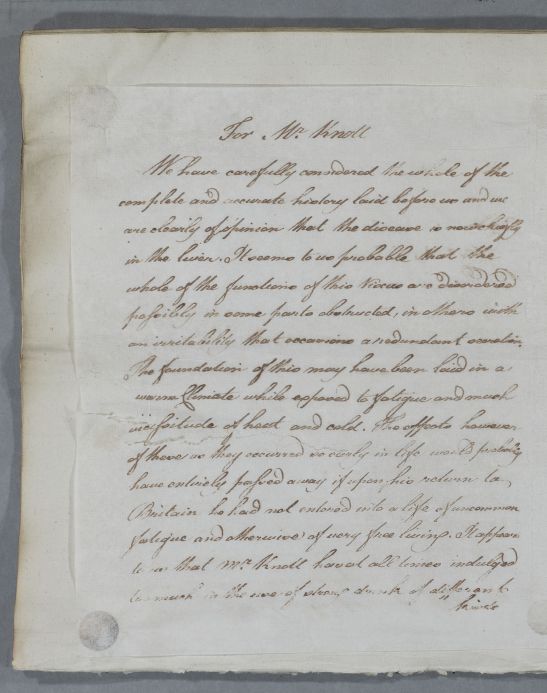 For Mr. Knoll
We have carefully considered the whole of the
complete and accurate history laid before us and we
are clearly of opinion that the disease is now chiefly
in the liver. It seems to us probable that the
whole of the functions of this Viscus are disordered
possibly in some parts obstructed, in others with
an irritability that occasions a redundant secretion.
The foundation of this may have been laid in a
warm Climate while exposed to fatigue and much
vicissitude of heat and cold. The effects however
of these as they occurred so early in life would probably
have entirely passed away if upon his return to
Britain he had not entered into a life of uncommon
fatigue and otherwise of very free living. It appears
to us that Mr. Knoll has at all times indulged
too much in the use of strong drink of different
kinds